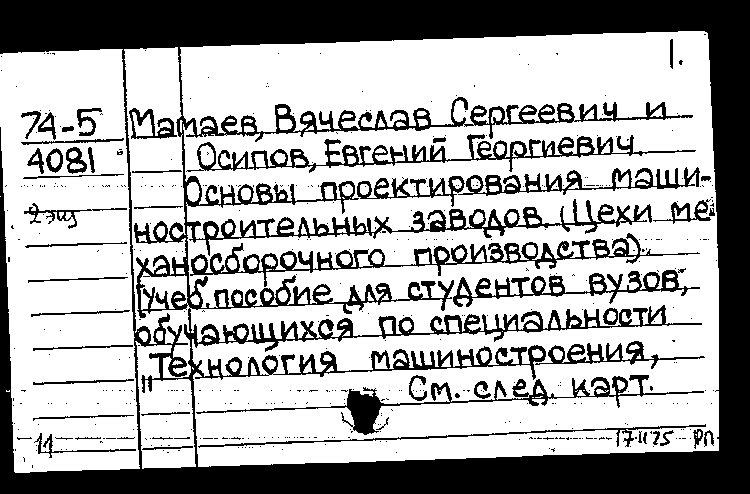 1.
74-5 Мамаев, Вячеслав Сергеевич и
4081 Осипов, Евгений Георгиевич.
Основы проектирования маши-
2 экз ностроительных заводов. (Цехи ме
ханосборочного производства).
[Учеб. пособие для студентов вузов,
обучающихся по специальности
„Технология машиностроения,
См. след. карт.
11
17 II 75 РП